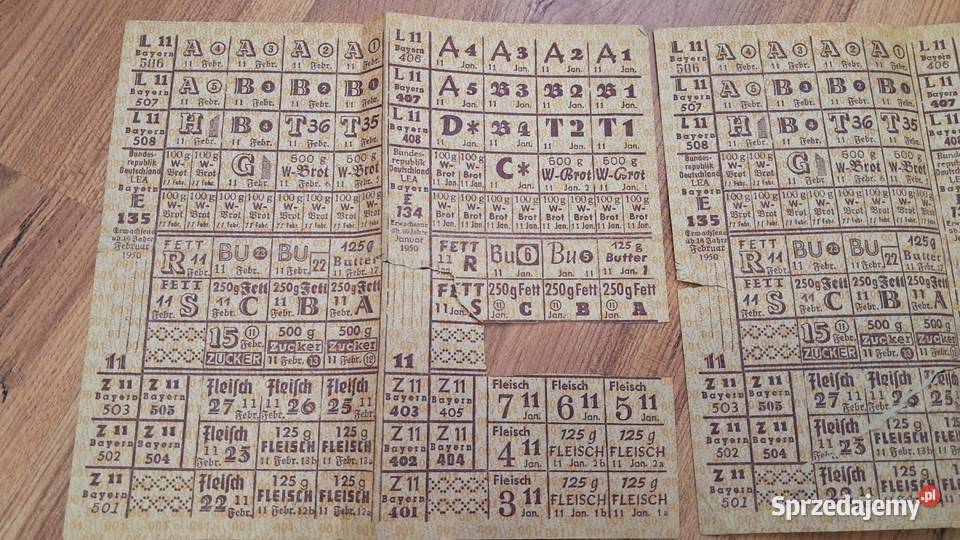 L 11
Bayern
506
A 4
11 Febr.
A 3
11 Febr.
A 2
11 Febr.
A 1
11 Febr.
L 11
Bayern
507
A 5
11 Febr.
B 3
11 Febr.
B 2
11 Febr.
B 1
11 Febr.
L 11
Bayern
508
H
11 Febr.
B 4
11 Febr.
T 36
11 Febr.
T 35
11 Febr.
Bundes-
republik
Deutschland
LEA
Bayern
E
135
Erwachsene
üb. 16 Jahre
Februar
1950
100 g
W-
Brot
11 Febr.
100 g
W-
Brot
11 Febr.
G
11 Febr.
500 g
W-Brot
11 Febr. 6
500 g
W-Brot
11 Febr.
W-
Brot
11 Febr.
FETT
R 11
Febr.
BU 23
11 Febr.
BU 22
11 Febr.
125 g
Butter
11 Febr. 17
FETT
11 S
Febr.
250g Fett
11 C
Febr.
250g Fett
11 B
Febr.
250g Fett
11 A
Febr.
15 11
Febr.
ZUCKER
500 g
Zucker
11 Febr. 13
500 g
Zucker
11 Febr. 12
11
Z 11
Bayern
503
Z 11
Bayern
505
Fleisch
27 11
Febr.
Fleisch
11 26
Febr.
Fleisch
25 11
Febr.
Z 11
Bayern
502
Z 11
Bayern
504
Fleisch
11 23
Febr.
125 g
FLEISCH
11 Febr. 13b
125 g
FLEISCH
11 Febr. 13a
Z 11
Bayern
501
Fleisch
22 11
Febr.
125 g
FLEISCH
11 Febr. 12b
125 g
FLEISCH
11 Febr. 12a
L 11
Bayern
406
A 4
11 Jan.
A 3
11 Jan.
A 2
11 Jan.
A 1
11 Jan.
L 11
Bayern
407
A 5
11 Jan.
B 3
11 Jan.
B 2
11 Jan.
B 1
11 Jan.
L 11
Bayern
408
D*
11 Jan.
B 4
11 Jan.
T 2
11 Jan.
T 1
11 Jan.
Bundes-
republik
Deutschland
LEA
Bayern
E
134
Erwachsene
üb. 16 Jahre
Januar
1950
100 g
W-
Brot
11 Jan.
100 g
W-
Brot
11 Jan.
C*
11 Jan.
500 g
W-Brot
11 Jan. 2
500 g
W-Brot
11 Jan. 1
100 g
W-
Brot
11 Jan.
FETT
11 R
Jan.
Bu 6
11 Jan.
Bu 5
11 Jan.
125 g
Butter
11 Jan. 1
FETT
11 S
Jan.
250g Fett
C
11 Jan.
250g Fett
B
11 Jan.
250g Fett
A
11 Jan.
11
Z 11
Bayern
403
Z 11
Bayern
405
Fleisch
7 11
Jan.
Fleisch
6 11
Jan.
Fleisch
5 11
Jan.
Z 11
Bayern
402
Z 11
Bayern
404
Fleisch
4 11
Jan.
125 g
FLEISCH
11 Jan. 2b
125 g
FLEISCH
11 Jan. 2a
Z 11
Bayern
401
Fleisch
3 11
Jan.
125 g
FLEISCH
11 Jan. 1b
125 g
FLEISCH
11 Jan. 1a
L 11
Bayern
506
A 4
11 Febr.
A 3
11 Febr.
A 2
11 Febr.
A 1
11 Febr.
L 11
Bayern
507
A 5
11 Febr.
B 3
11 Febr.
B 2
11 Febr.
B 1
11 Febr.
L 11
Bayern
508
H
11 Febr.
B 4
11 Febr.
T 36
11 Febr.
T 35
11 Febr.
Bundes-
republik
Deutschland
LEA
Bayern
E
135
Erwachsene
üb. 16 Jahre
Februar
1950
G
11 Febr.
500 g
W-Brot
FETT
R 11
Febr.
BU 23
11 Febr.
BU 22
11 Febr.
125 g
Butter
FETT
11 S
Febr.
250g Fett
11 C
Febr.
250g Fett
11 B
Febr.
250g Fett
11 A
Febr.
15 11
Febr.
ZUCKER
500 g
Zucker
11 Febr. 13
500 g
Zucker
11
Z 11
Bayern
503
Z 11
Bayern
505
Fleisch
27 11
Febr.
Fleisch
Z 11
Bayern
502
Z 11
Bayern
504
Fleisch
11 23
Febr.
125 g
FLEISCH
125 g
FLEISCH
Z 11
Bayern
501
Fleisch
125 g
125 g
Sprzedajemy.pl